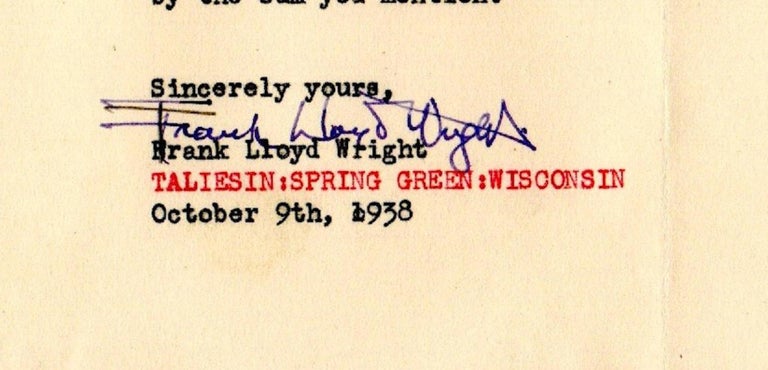 by the sum you mention.
Sincerely yours,
Frank Lloyd Wright
Frank Lloyd Wright
TALIESIN:SPRING GREEN:WISCONSIN
October 9th, 1938